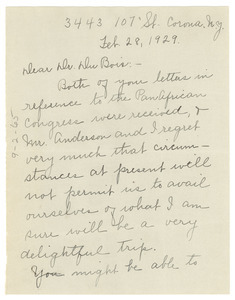 3443 107" St. Corona, N.Y.
Feb. 28, 1929.
Dear Dr. Du Bois:-
Both of your letters in
reference to the PanAfrican
Congress were received, &
Mr. Anderson and I regret
very much that circum-
stances at present will
not permit us to avail
ourselves of what I am
sure will be a very
delightful trip.
You might be able to